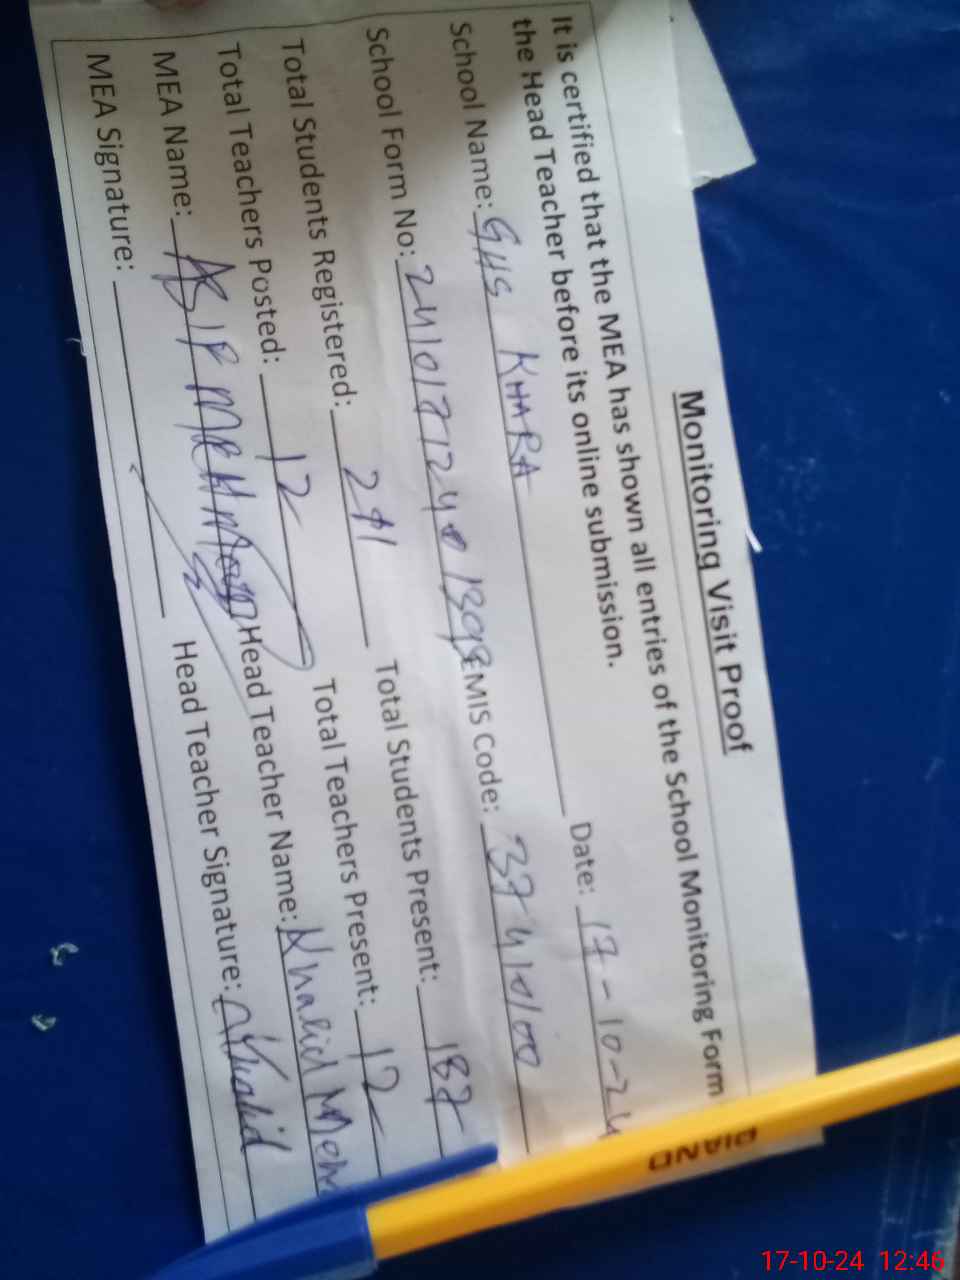 Monitoring Visit Proof
It is certified that the MEA has shown all entries of the School Monitoring Form
the Head Teacher before its online submission.
School Name: GHS KHARA Date: 17-10-24
School Form No: EMIS Code: 37410100
Total Students Registered: 211 Total Students Present: 187
Total Teachers Posted: 12 Total Teachers Present: 12
MEA Name: Head Teacher Name: Khalid
MEA Signature: Head Teacher Signature: Khalid
PIANO
17-10-24 12:46